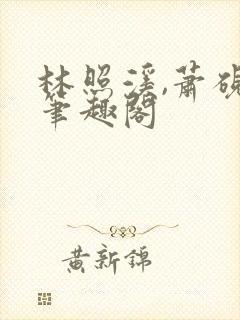 林照溪,萧砚
笔趣阁
黄新锦